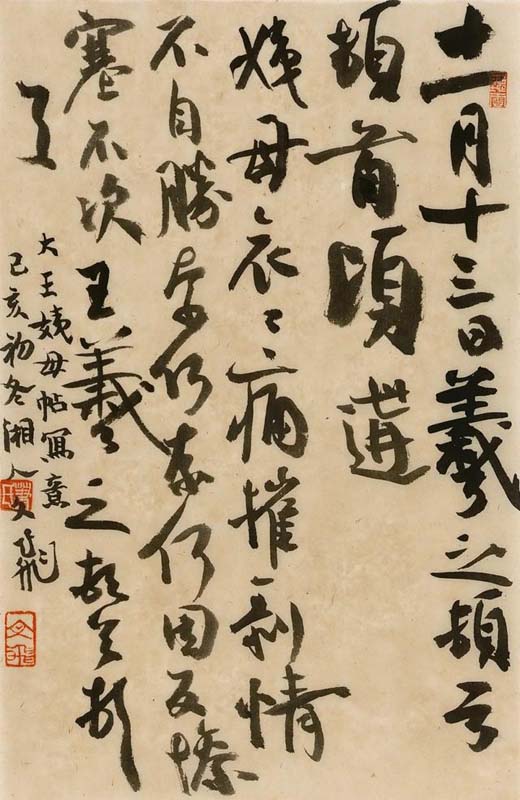 十一月十三日羲之頓首
頓首頃遘
姨母哀〻痛摧剝情
不自勝奈何奈何因反慘
塞不次王羲之頓首頓
首
大王姨母帖寫意
己亥初冬湘人文飛